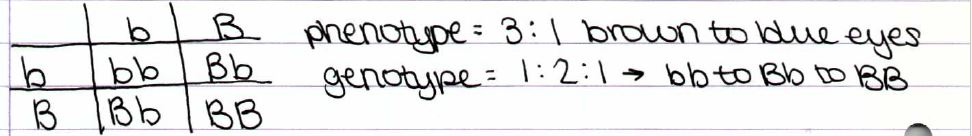 b B phenotype = 3:1 brown to blue eyes
b bb Bb genotype = 1:2:1 → bb to Bb to BB
B Bb BB